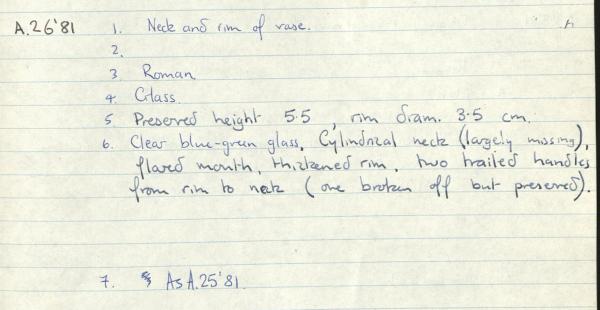 A.26'81 1. Neck and rim of vase.
2.
3 Roman
4. Glass.
5. Preserved height 5.5, rim diam. 3.5 cm.
6. Clear blue-green glass, Cylindrical neck (largely missing),
flared mouth, thickened rim, two trailed handles
from rim to neck (one broken off but preserved).
7. As A.25'81.